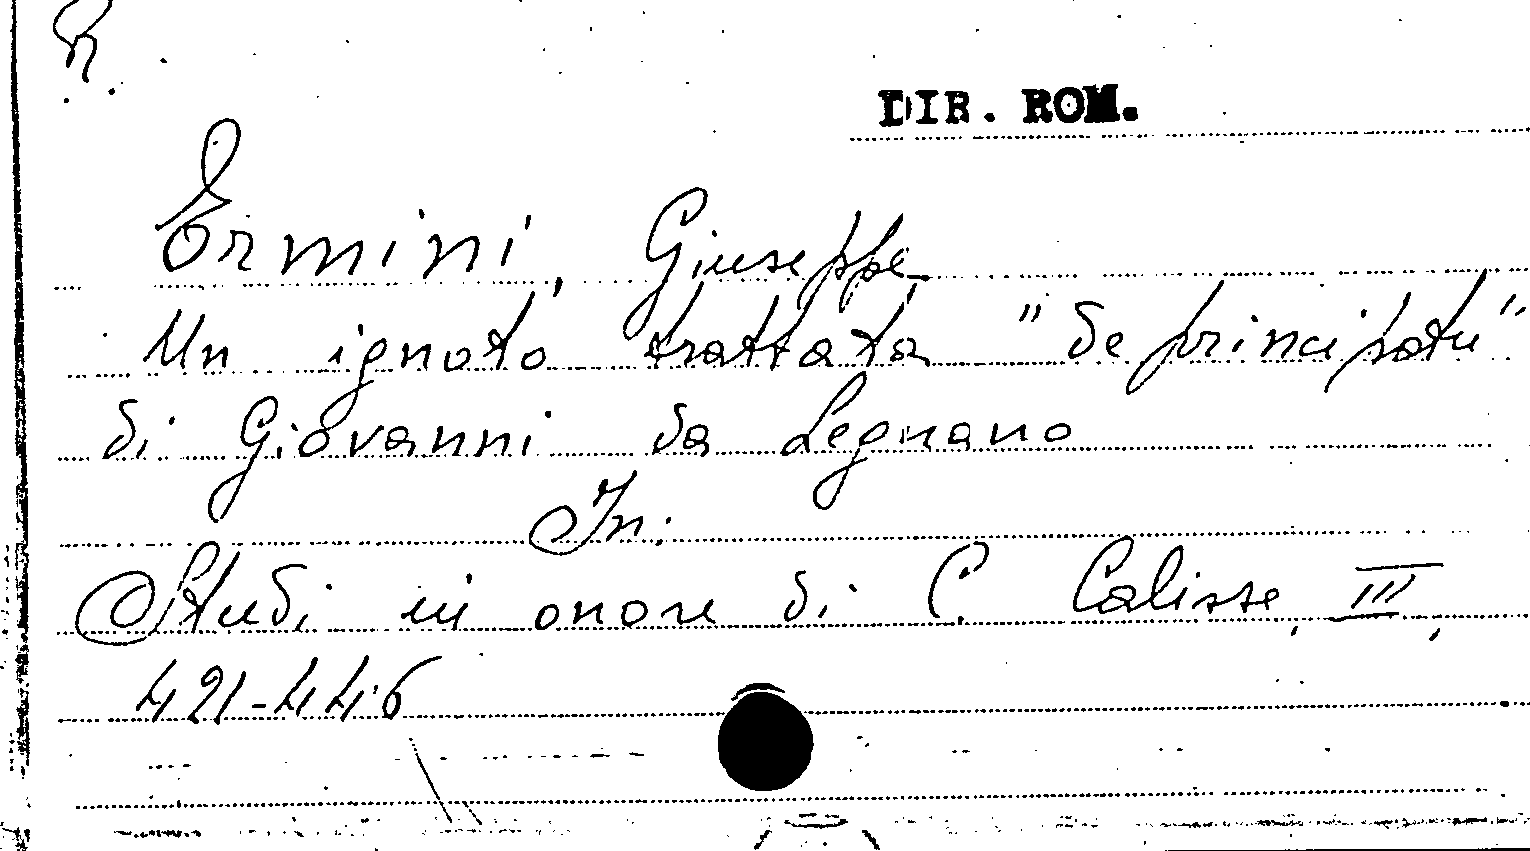 DIR. ROM.
Ermini, Giuseppe
Un ignoto trattato "de principatu"
di Giovanni da Legnano
In:
Studi in onore di C. Calisse, III,
421-446